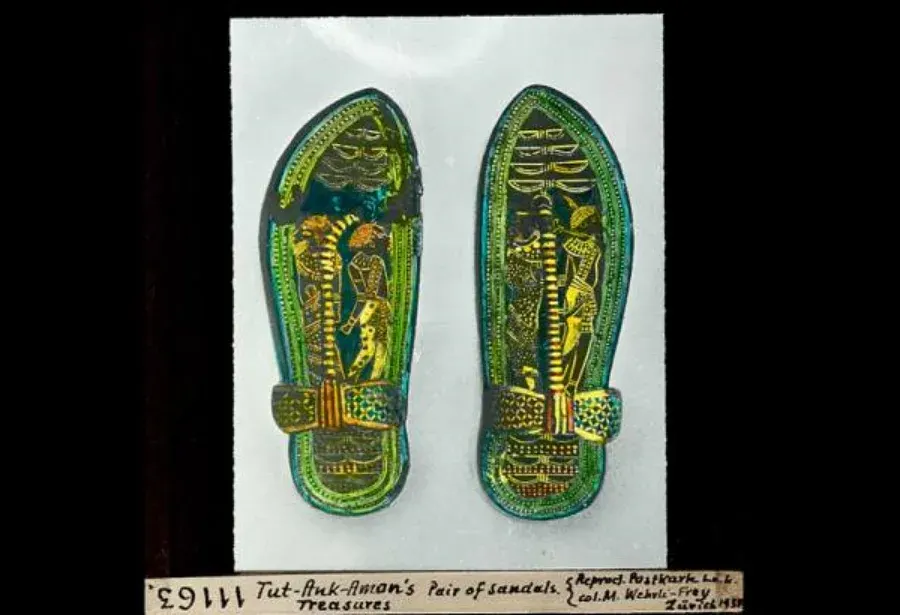 11163.
Tut-Ank-Amon's Pair of Sandals.
Treasures
Reprod. Postkarte
col. M. Wehrli-Frey
Zürich